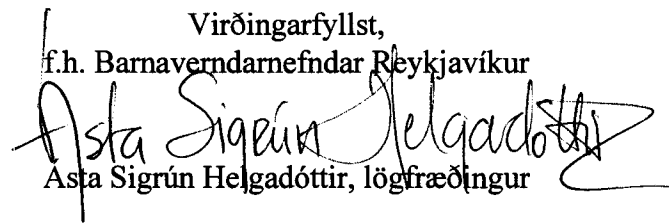 Virðingarfyllst,
f.h. Barnaverndarnefndar Reykjavíkur
Ásta Sigrún Helgadóttir
Ásta Sigrún Helgadóttir, lögfræðingur